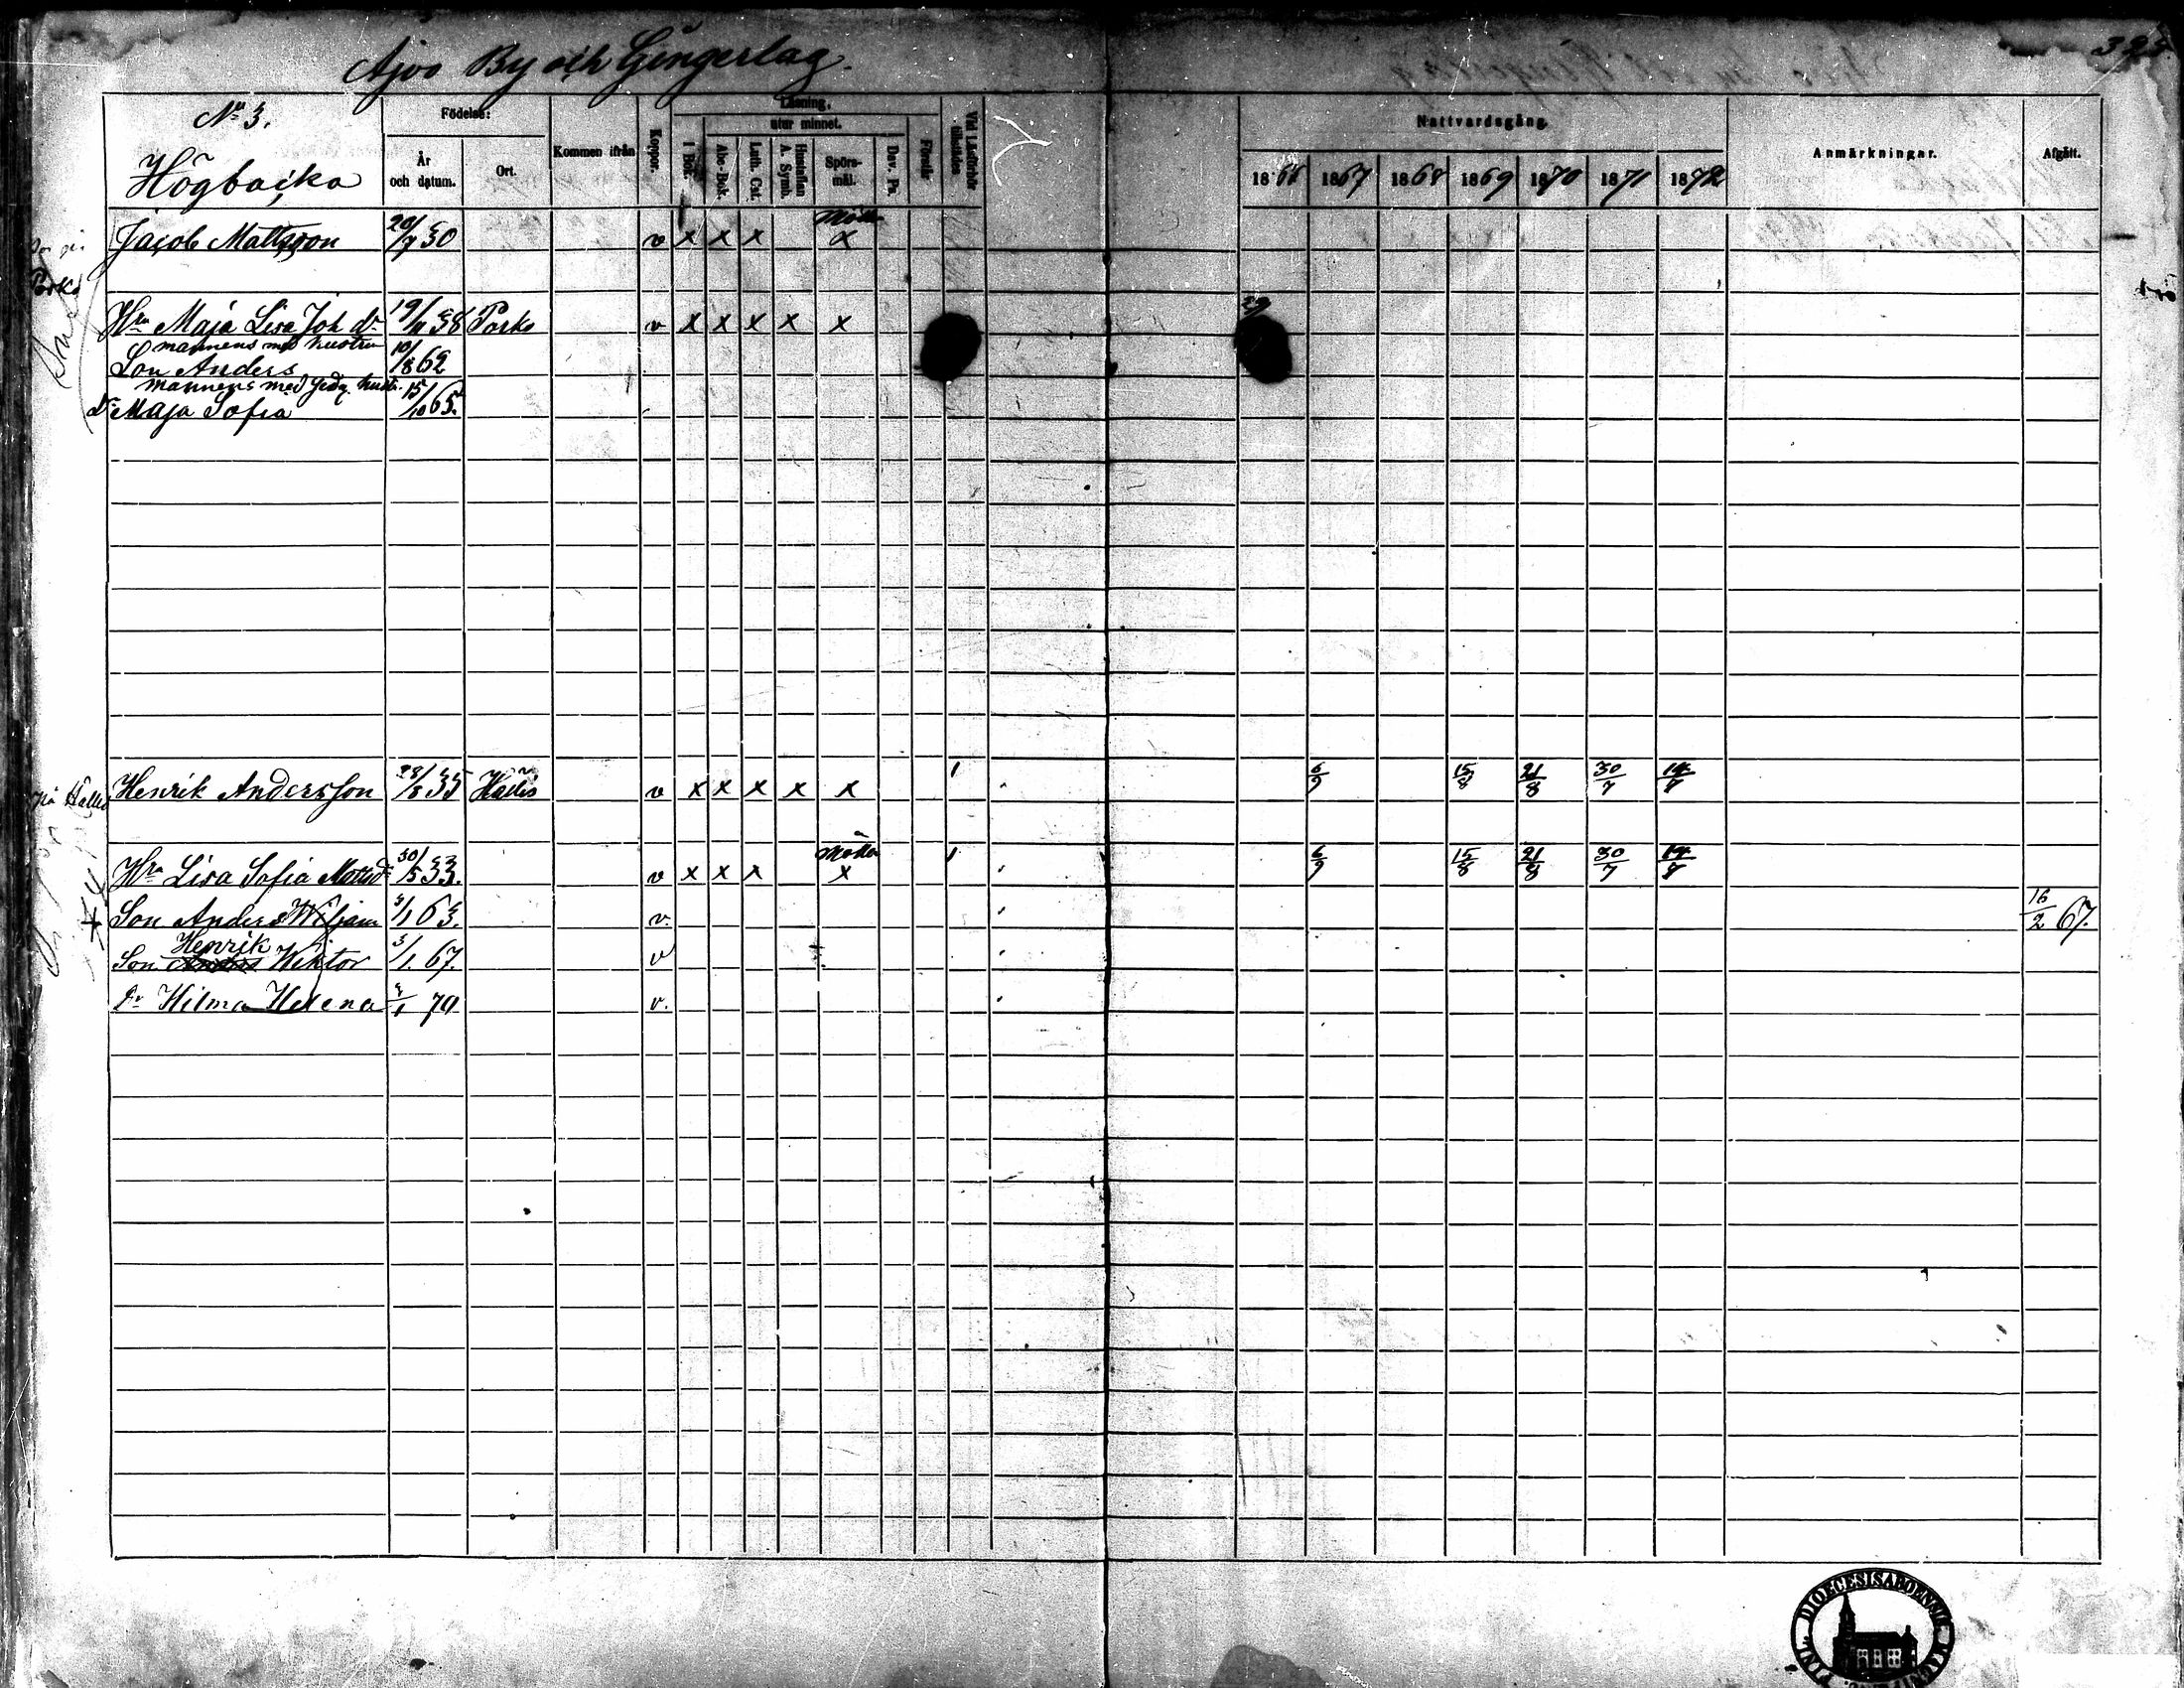 Ajos By och Gingerlag.
395.
No 3.
Högbacka
Födelse:
År och datum.
Ort.
Kommen ifrån
Koppor.
Läsning,
utur minnet.
I Bok.
Abc-Bok.
Luth. Cat.
Hustaflan A. Symb.
Spörs-mål.
Dav. Ps.
Förstår
Vid Läsförhör tillstädes
Nattvardsgång.
1866 1867 1868 1869 1870 1871 1872
Anmärkningar.
Afgått.
Jacob Mattsson 20/7 30 v x x x x
Porko
Hru Maja Lisa Joh dr 19/11 38 Porko v x x x x x 29
mannens med hustru
Son Anders 10/8 62
mannens med hust.
dr Maja Sofia 15/10 65.
Henrik Andersson 28/8 35 v x x x x x 1 6/9 15/8 21/8 30/7 14/7
Hru Lisa Sofia Mattsdr 30/5 33. v x x x x 1 6/9 15/8 21/8 30/7 14/7
Son Anders Wiljam 3/1 63. v. 16/2 67.
Henrik
Son Anders Wiktor 3/1. 67. v
dr Hilma Helena 70 v.
DIOECESIS ABOENSIS
FINL.